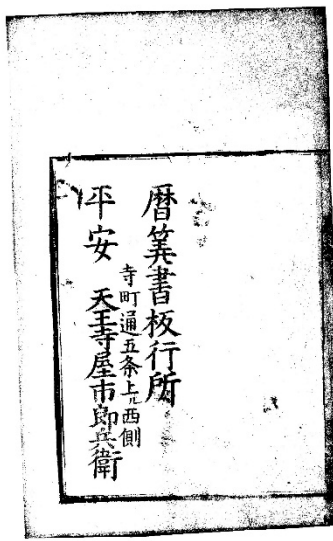 暦筭書板行所
寺町通五条上ル西側
平安 天王寺屋市郎兵衛